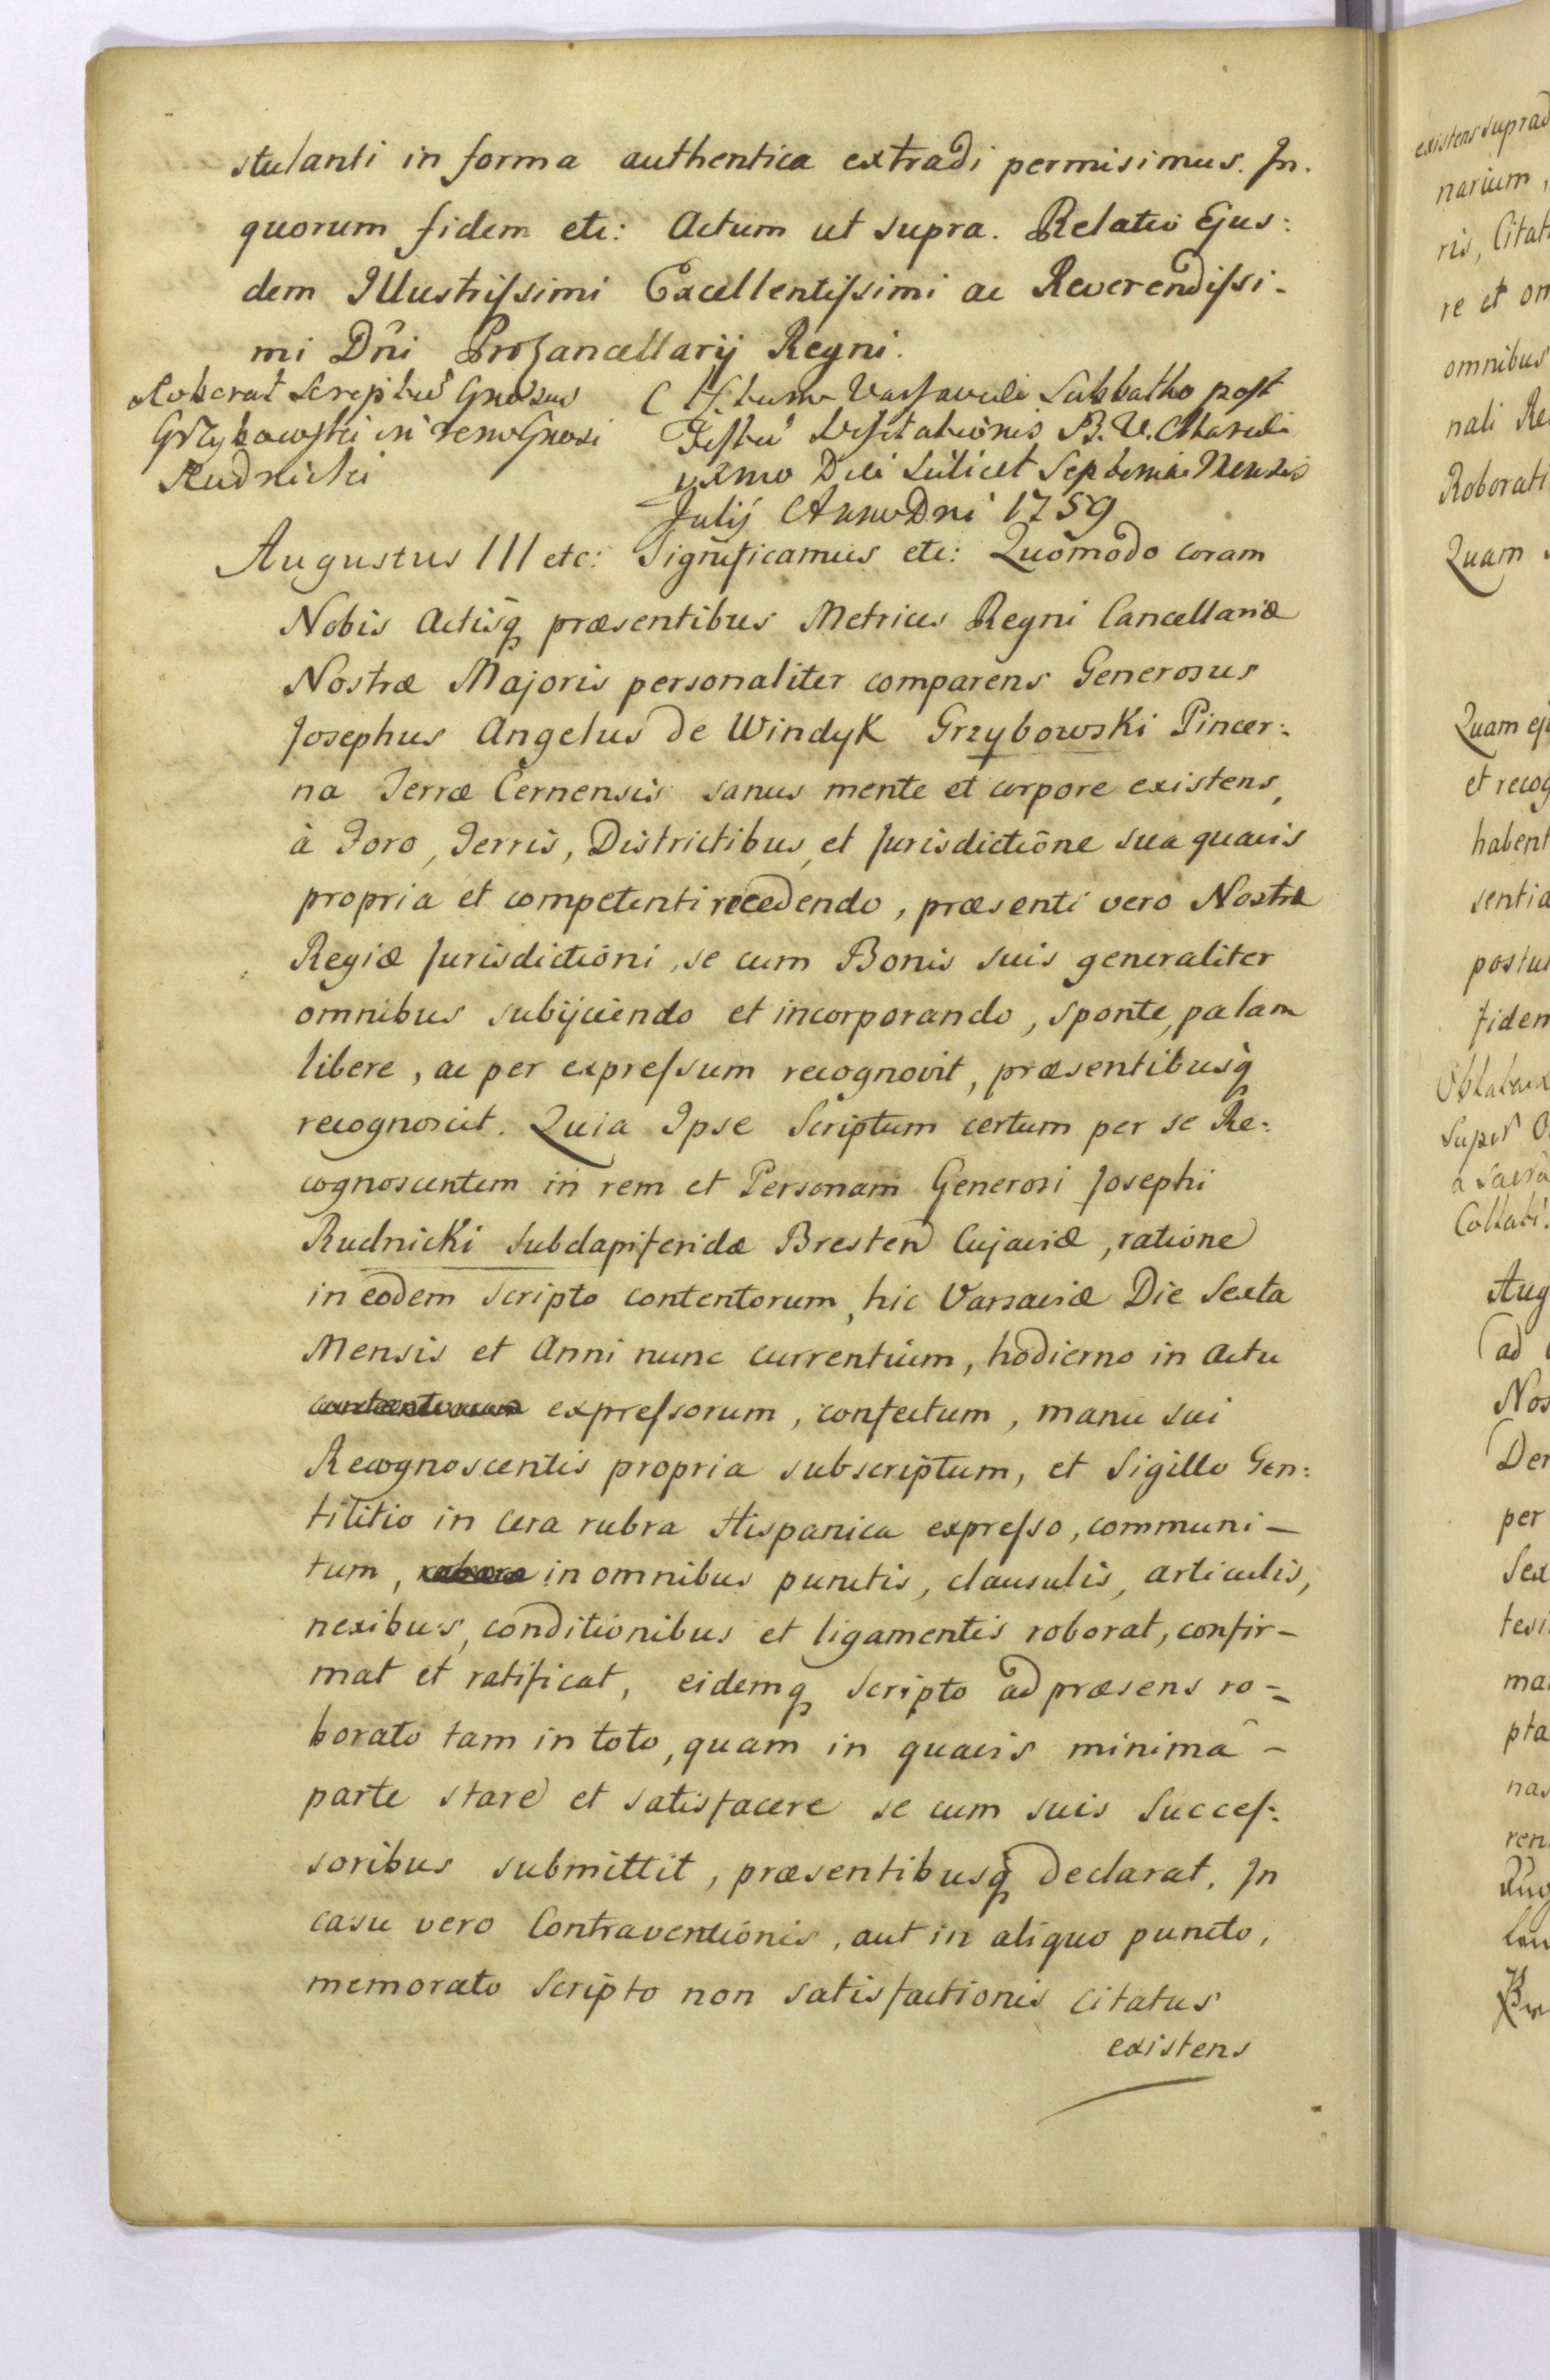 stulanti in forma authentica extradi permisimus. In.
quorum fidem etc: Actum ut supra. Relatio Ejus:
dem Illustrissimi Excellentissimi ac Reverendissi-
mi Dñi Procancellarij Regni.
Roborat Scriptu Gnosus
Grzybowski in rem Gnosi
Rudnicki
Actum Varsaviæ Sabbatho post
Festu Visitationis B. V. Mariæ
pxmo Die Scilicet Septima Mensis
Julij Anno Dni 1759
Augustus III etc: Significamus etc: Quomodo coram
Nobis Actisq præsentibus Metrices Regni Cancellariæ
Nostræ Majoris personaliter comparens Generosus
Josephus Angelus de Windyk Grzybowski Pincer:
na Terræ Cernensis sanus mente et corpore existens,
à Foro, Terris, Districtibus, et Jurisdictione sua quavis
propria et competenti recedendo, præsenti vero Nostræ
Regiæ Jurisdictioni, se cum Bonis suis generaliter
omnibus subijciendo et incorporando, sponte, palam
libere, ac per expressum recognovit, præsentibusq
recognoscit. Quia Ipse Scriptum certum per se Re:
cognoscentem in rem et Personam Generosi Josephi
Rudnicki Subdapiferidæ Bresten Cujaviæ, ratione
in eodem Scripto contentorum, hic Varsaviæ Die Sexta
Mensis et Anni nunc currentium, hodierno in Actu
contentorum expressorum, confectum, manu sui
Recognoscentis propria subscriptum, et Sigillo Gen:
tilitio in cera rubra Hispanica expresso, communi-
tum, in omnibus punctis, clausulis, articulis,
nexibus, conditionibus et ligamentis roborat, confir-
mat et ratificat, eidemq Scripto ad præsens ro-
borato tam in toto, quam in quavis minimâ -
parte stare et satisfacere se cum suis Succes:
soribus submittit, præsentibusq declarat. In
casu vero Contraventionis, aut in aliquo puncto,
memorato Scripto non satisfactionis citatus
existens
existens suprad
narium,
ris, Citat
re et om
omnibus
nali Re
Roborati
Quam
Quam ej
et recog
habent
sentia
postul
fidem
Super O
a Sacra
Collati.
Aug
ad
Nos
Der
per
Sex
tesi
ma
pta
nas
ren